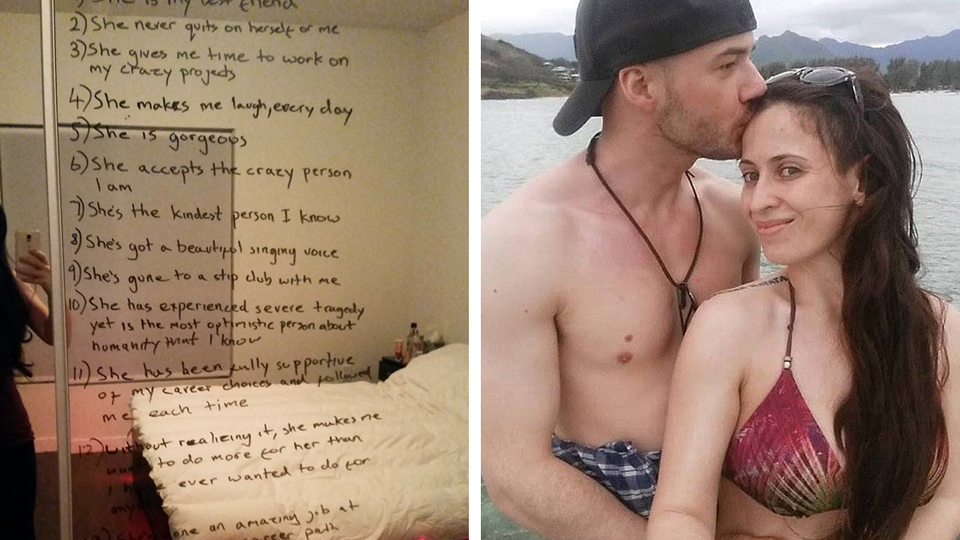 1) She is my best friend
2) She never quits on herself or me
3) She gives me time to work on
my crazy projects
4) She makes me laugh, every day
5) She is gorgeous
6) She accepts the crazy person
I am
7) She's the kindest person I know
8) She's got a beautiful singing voice
9) She's gone to a strip club with me
10) She has experienced severe tragedy
yet is the most optimistic person about
humanity that I know
11) She has been fully supportive
of my career choices and followed
me each time
12) Without realizing it, she makes me
to do more for her than
I ever wanted to do for
an amazing job at
career path